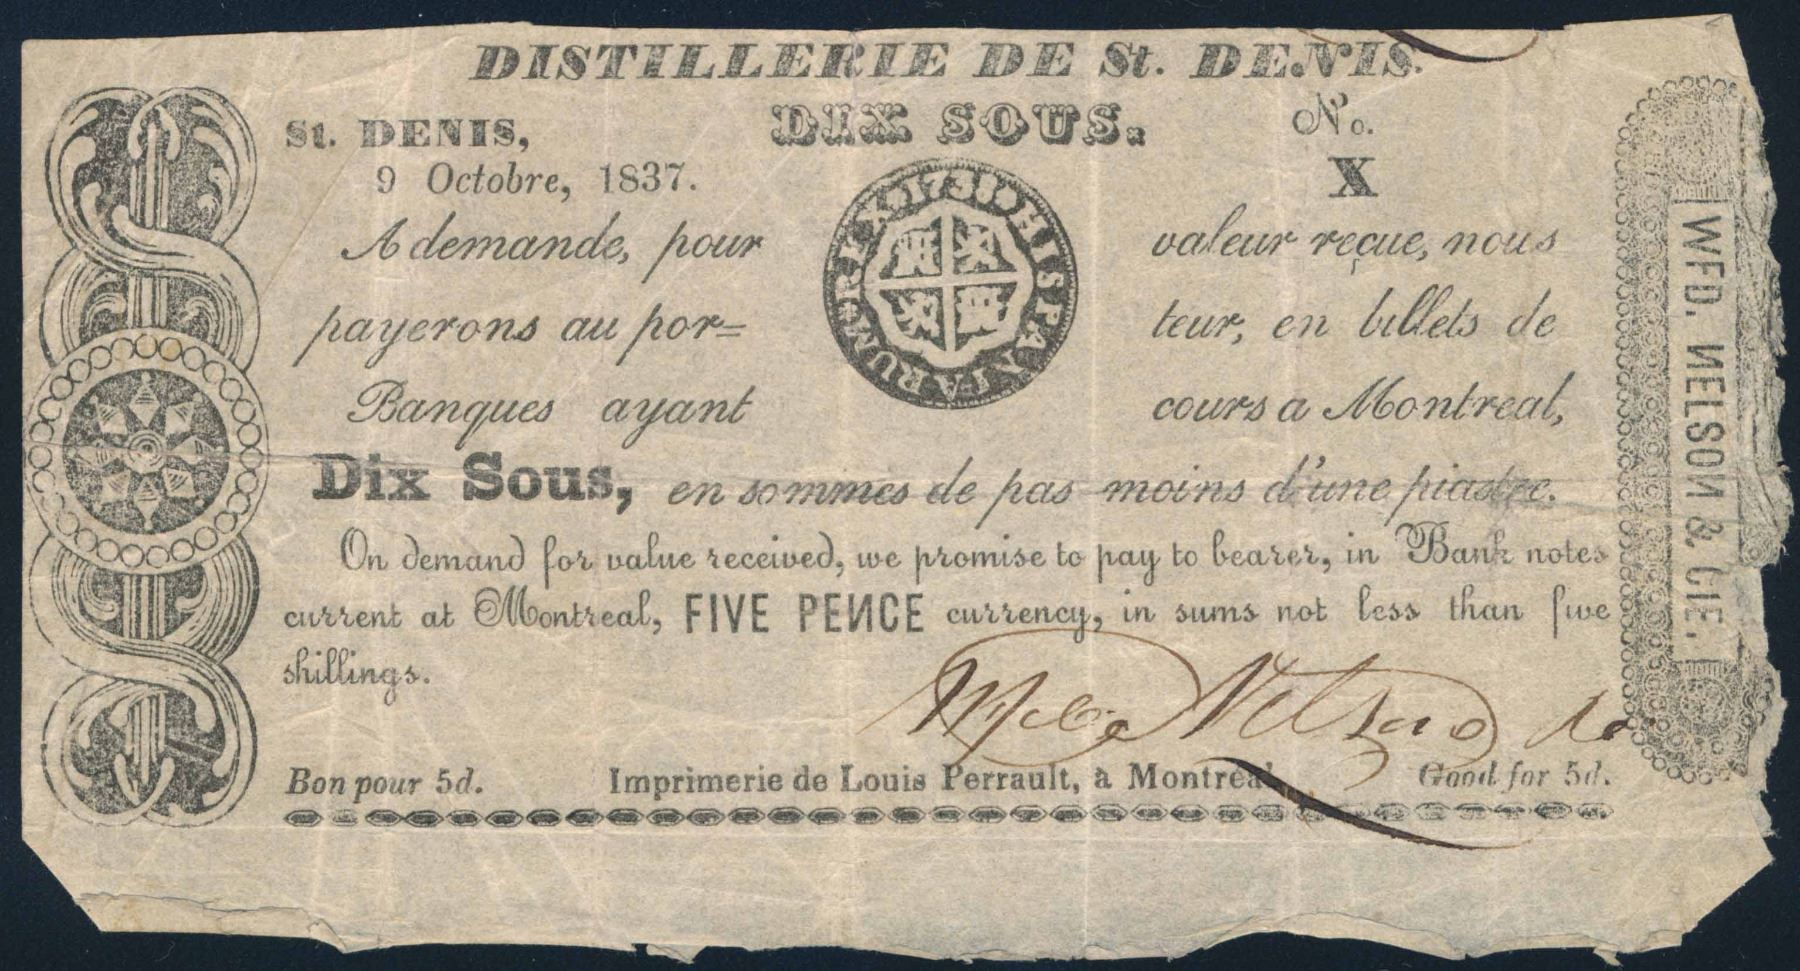 DISTILLERIE DE St. DENIS.
St. DENIS,
DIX SOUS.
No.
9 Octobre, 1837.
X
REX · 1738 · HISPANIARUM
A demande, pour valeur reçue, nous
payerons au por= teur, en billets de
Banques ayant cours a Montreal,
Dix Sous, en sommes de pas moins d'une piastre.
On demand for value received, we promise to pay to bearer, in Bank notes
current at Montreal, FIVE PENCE currency, in sums not less than five
shillings.
Nelson
Bon pour 5d. Imprimerie de Louis Perrault, à Montreal. Good for 5d.
WFD. NELSON & CIE.